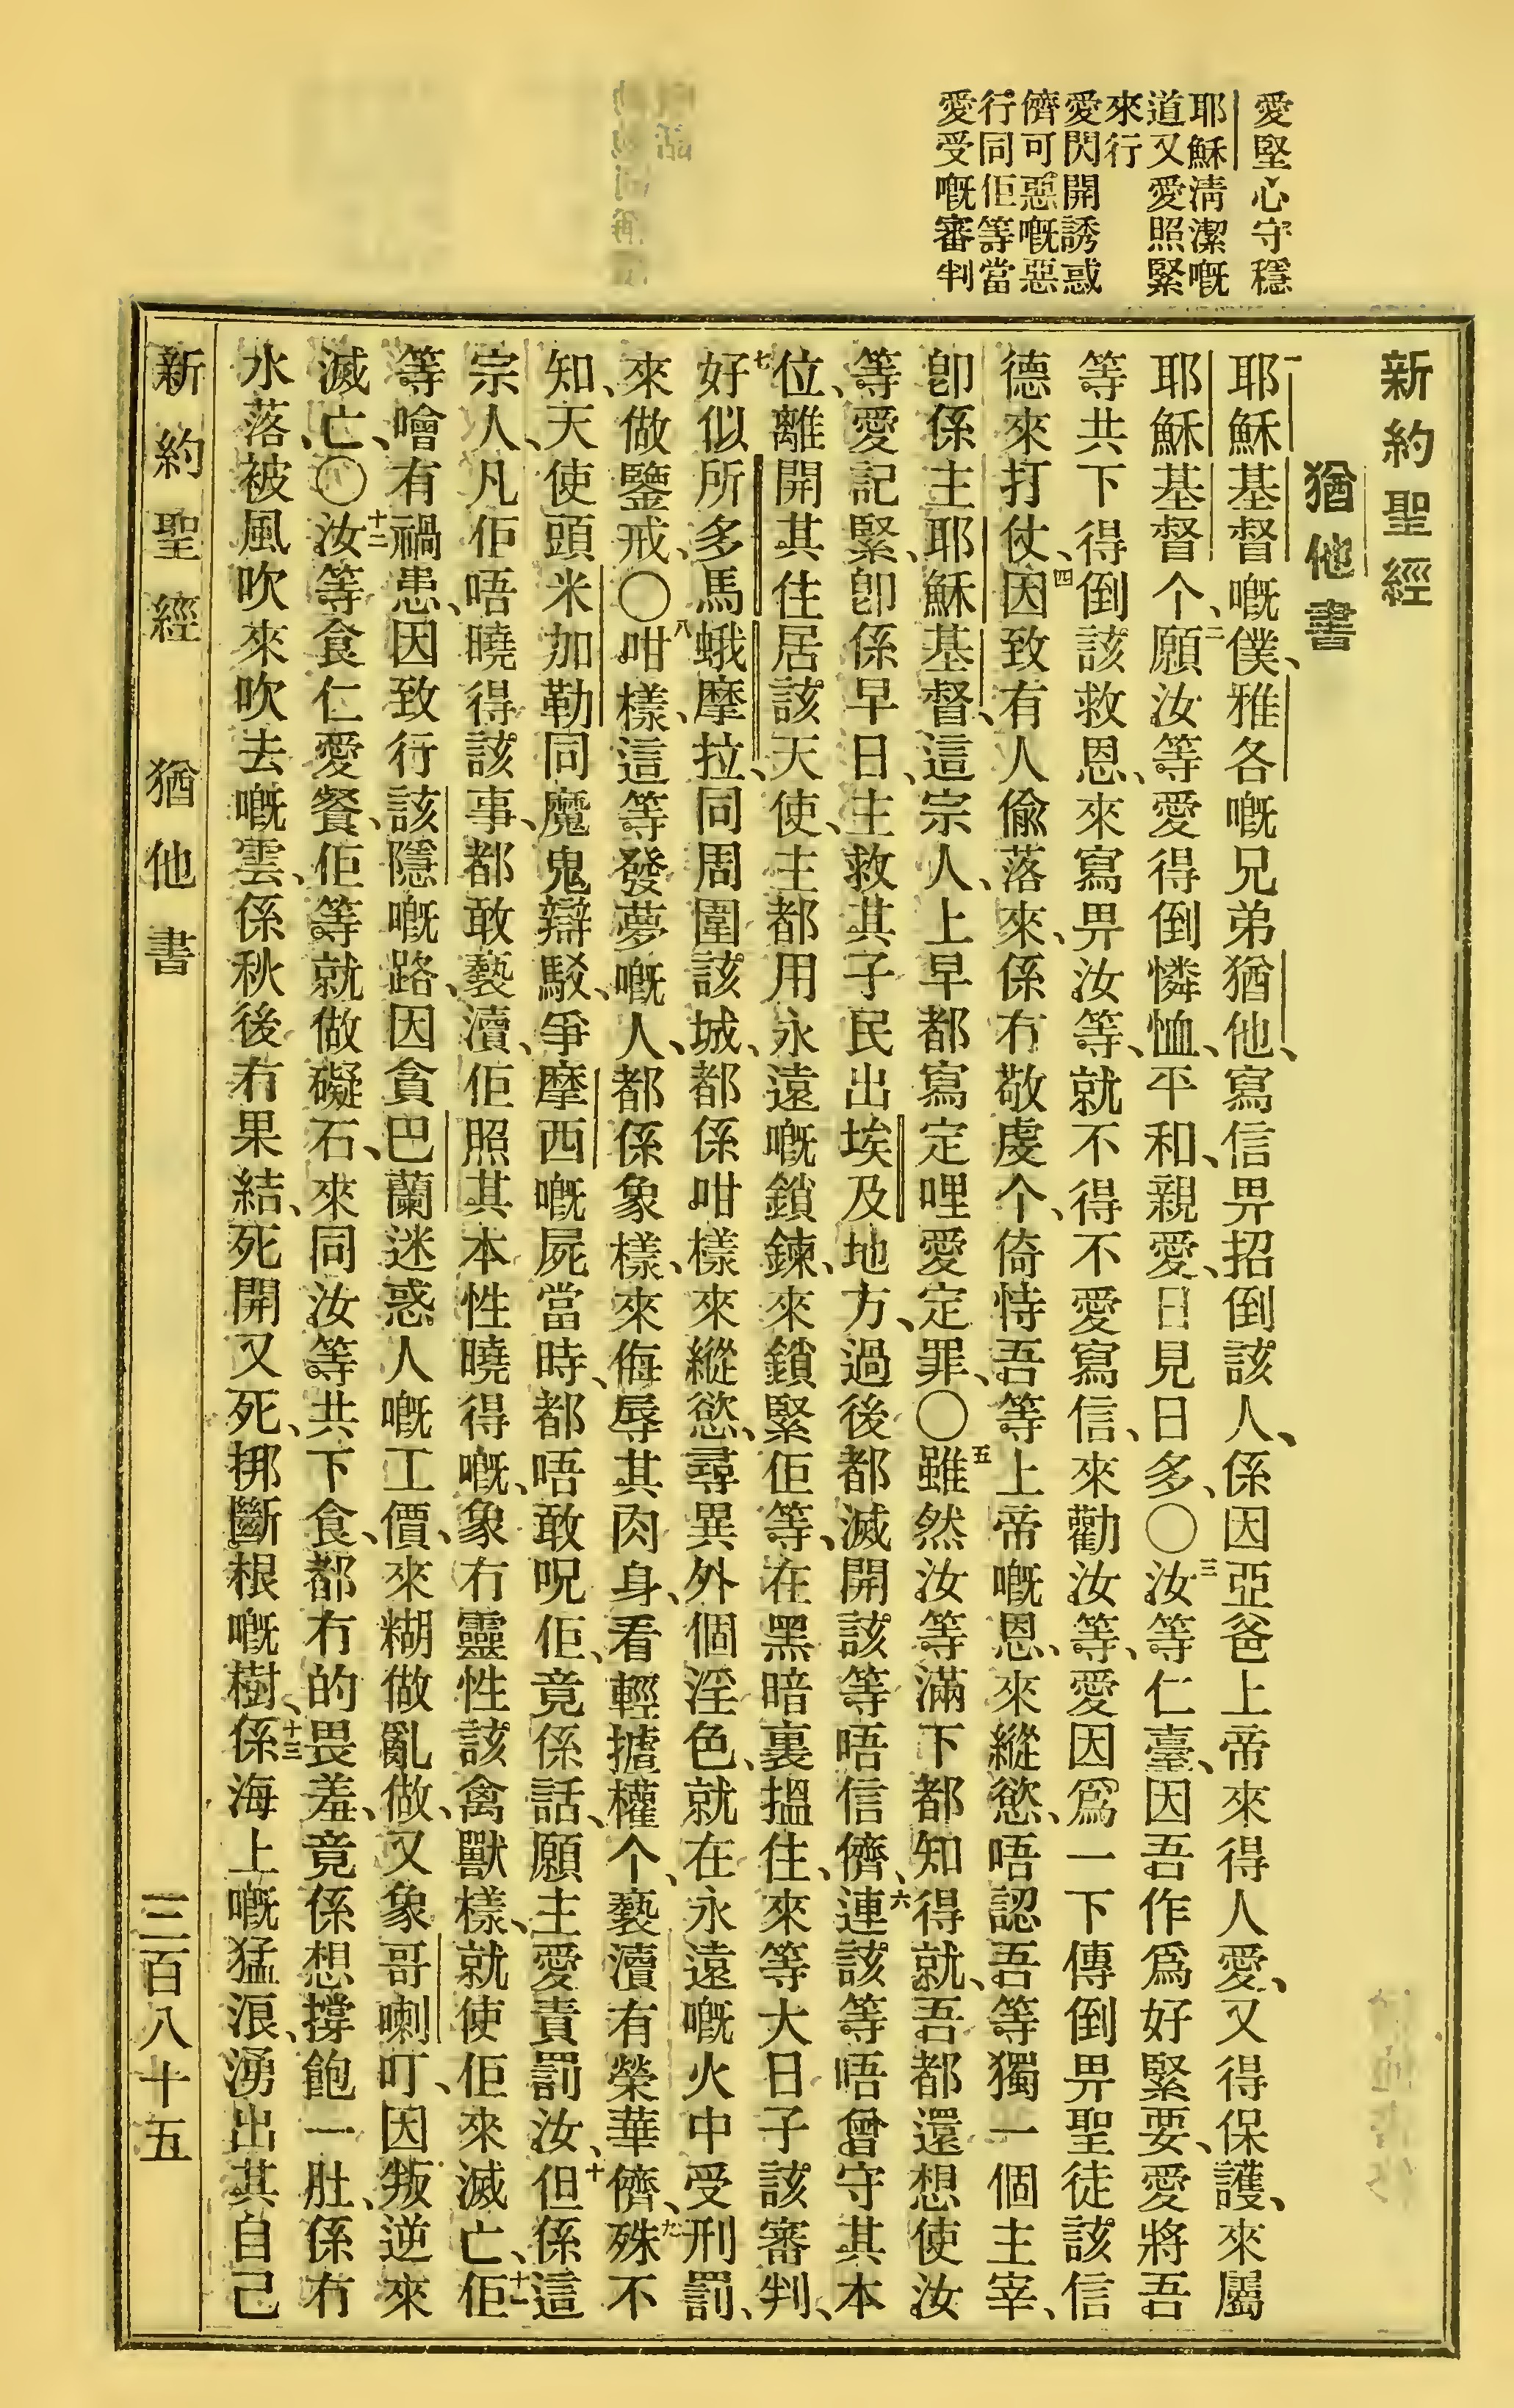 愛堅心守穩
耶穌淸潔嘅
道又愛照緊
來行
愛閃開誘惑
儕可惡嘅惡
行同佢等當
愛受嘅審判
新約聖經
猶他書
一耶穌基督嘅僕、雅各嘅兄弟猶他、寫信畀招倒該人、係因亞爸上帝來得人愛、又得保護、來屬
耶穌基督个、二願汝等愛得倒憐恤、平和、親愛、日見日多、〇三汝等仁臺、因吾作爲好緊要、愛將吾
等共下得倒該救恩、來寫畀汝等、就不得不愛寫信、來勸汝等、愛因爲一下傳倒畀聖徒該信
德來打仗、四因致有人偸落來、係冇敬虔个、倚恃吾等上帝嘅恩、來縱慾、唔認吾等獨一個主宰、
卽係主耶穌基督、這宗人、上早都寫定哩愛定罪、〇五雖然汝等滿下都知得就、吾都還想使汝
等愛記緊、卽係早日、主救其子民出埃及地方、過後都滅開該等唔信儕、六連該等唔曾守其本
位、離開其住居該天使、主都用永遠嘅鎖鍊、來鎖緊佢等、在黑暗裏搵住、來等大日子該審判、
七好似所多馬蛾摩拉、同周圍該城、都係咁樣來縱慾、尋異外個淫色、就在永遠嘅火中受刑罰、
來做鑒戒、〇八咁樣、這等發夢嘅人、都係象樣、來侮辱其肉身、看輕攎權个、褻瀆有榮華儕、九殊不
知、天使頭米加勒同魔鬼辯駁、爭摩西嘅屍當時、都唔敢呪佢、竟係話、願主愛責罰汝、十但係這
宗人、凡佢唔曉得該事、都敢褻瀆、佢照其本性曉得嘅、象冇靈性該禽獸樣、就使佢來滅亡、十一佢
等噲有禍患、因致行該隱嘅路、因貪巴蘭迷惑人嘅工價、來糊做亂做、又象哥喇叮、因叛逆來
滅亡、〇十二汝等食仁愛餐、佢等就做礙石、來同汝等共下食、都冇的畏羞、竟係想撐飽一肚、係冇
水落、被風吹來吹去嘅雲、係秋後冇果結、死開又死、挪斷根嘅樹、十三係海上嘅猛浪、湧出其自己
新約聖經　猶他書　三百八十五